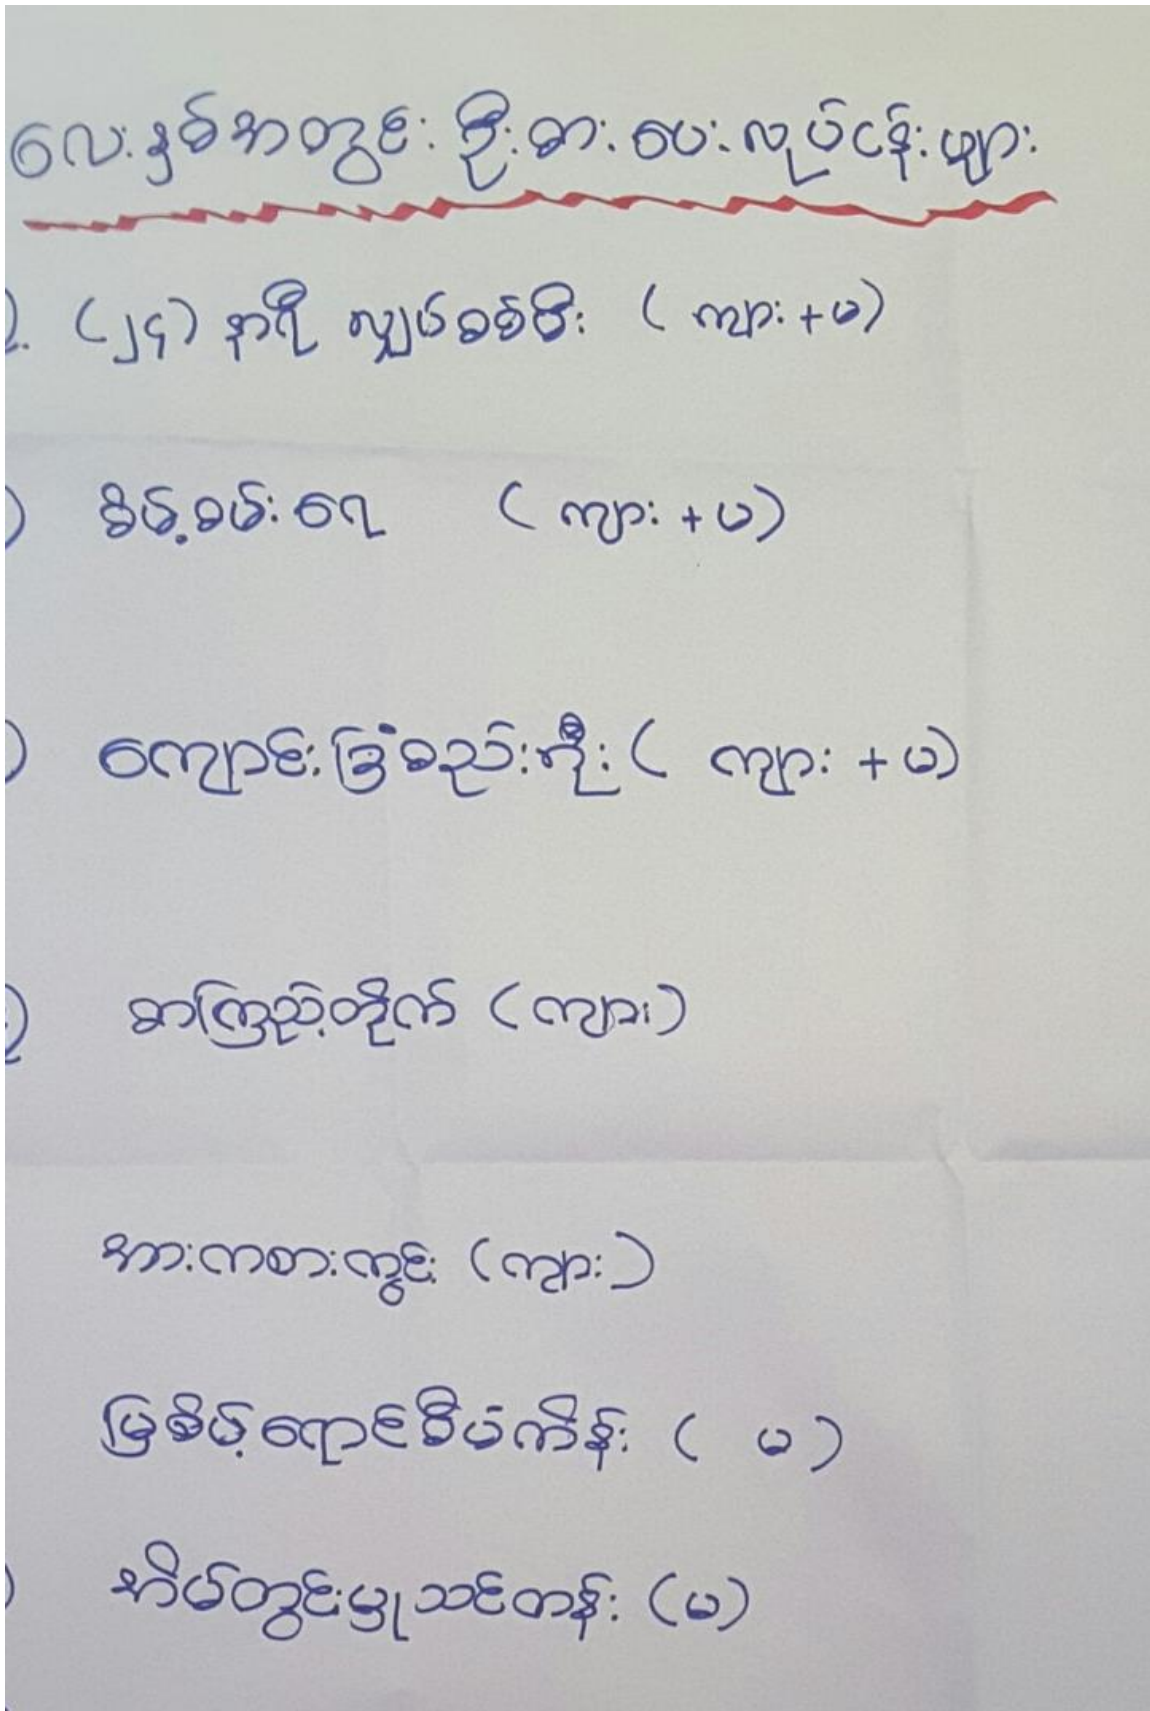 လေးနှစ်အတွင်း ဦးစားပေးလုပ်ငန်းများ
(၂၄) နာရီ လျှပ်စစ်မီး ( ကျား + မ )
စိမ့်စမ်းရေ ( ကျား + မ )
ကျောင်းခြံစည်းရိုး ( ကျား + မ )
စာကြည့်တိုက် ( ကျား )
အားကစားကွင်း ( ကျား )
မြစိမ့်ရောင်စီမံကိန်း ( မ )
အိမ်တွင်းမှုသင်တန်း ( မ )